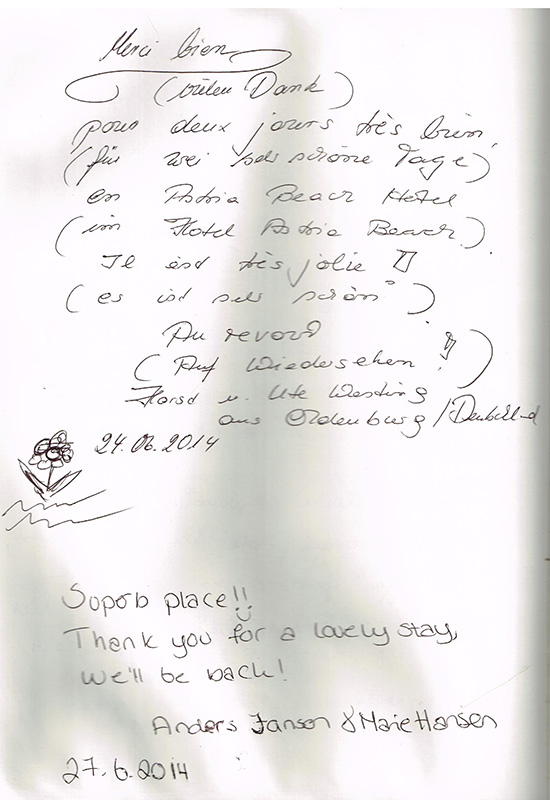 Merci bien
(vielen Dank)
pour deux jours très bien,
(für zwei sehr schöne Tage)
en Astria Beach Hotel
(im Hotel Astria Beach).
Il est très jolie !
(es ist sehr schön)
Au revoir
(Auf Wiedersehen!)
Horst u. Ute Westing
aus Oldenburg/
24.06.2014
Soporb place!!
Thank you for a lovely stay,
we'll be back!
Anders Janson & Marie Hansen
27.6.2014